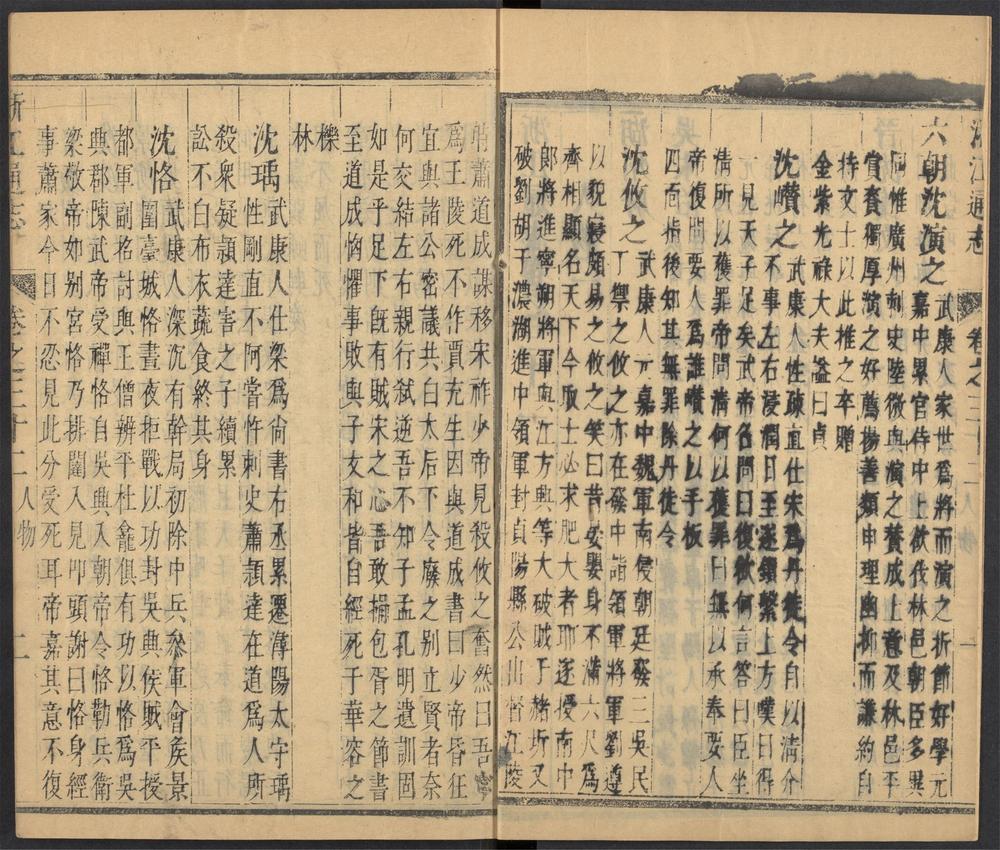 浙江通志 卷之三十二 人物 一
六朝沈演之 武康人家世爲將而演之折節好學元
嘉中累官侍中上欲伐林邑朝臣多異
同惟廣州刺史陸徽與演之贊成上意及林邑平
賞賚獨厚演之好薦揚善類申理幽抑而謙約自
持文士以此推之卒贈
金紫光祿大夫謚曰貞
沈巑之 武康人性疎直仕宋爲丹徒令自以清介
不事左右浸潤日至遂鎖繫上方嘆曰得
一見天子足矣武帝名問曰復欲何言答曰臣坐
清所以獲罪帝問清何以獲罪曰無以承奉要人
帝復問要人爲誰巑之以手板
四面指後知其無罪除丹徒令
沈攸之 武康人元嘉中魏軍南侵朝廷發三吳民
丁禦之攸之亦在發中詣領軍將軍劉遵
以貌寢頗易之攸之笑曰昔晏嬰身不滿六尺爲
齊相顯名天下今取士必求肥大者耶遂授南中
郎將進寧朔將軍與江方興等大破賊于赭圻又
破劉胡于濃湖進中領軍封貞陽縣公出督江陵
時蕭道成謀移宋祚少帝見殺攸之奮然曰吾寧
爲王陵死不作賈充生因與道成書曰少帝昏狂
宜與諸公密議共白太后下令廢之别立賢者奈
何交結左右親行弑逆吾不知子孟孔明遺訓固
如是乎足下旣有賊宋之心吾敢捐包胥之節書
至道成惱懼事敗與子文和皆自經死于華容之
櫟
林
沈瑀 武康人仕梁爲尚書右丞累遷潯陽太守瑀
性剛直不阿嘗忤刺史蕭頴達在道爲人所
殺衆疑頴達害之子續累
訟不白布衣蔬食終其身
沈恪 武康人深沉有幹局初除中兵參軍會矦景
圍臺城恪晝夜拒戰以功封吳興侯賊平授
都軍副袼討與王僧辨平杜龕俱有功以恪爲吳
興郡陳武帝受禪恪自吳興入朝帝令恪勒兵衛
梁敬帝如别宮恪乃排闥入見叩頭謝曰恪身經
事蕭家今日不忍見此分受死耳帝嘉其意不復
浙江通志 卷之三十二 人物 二